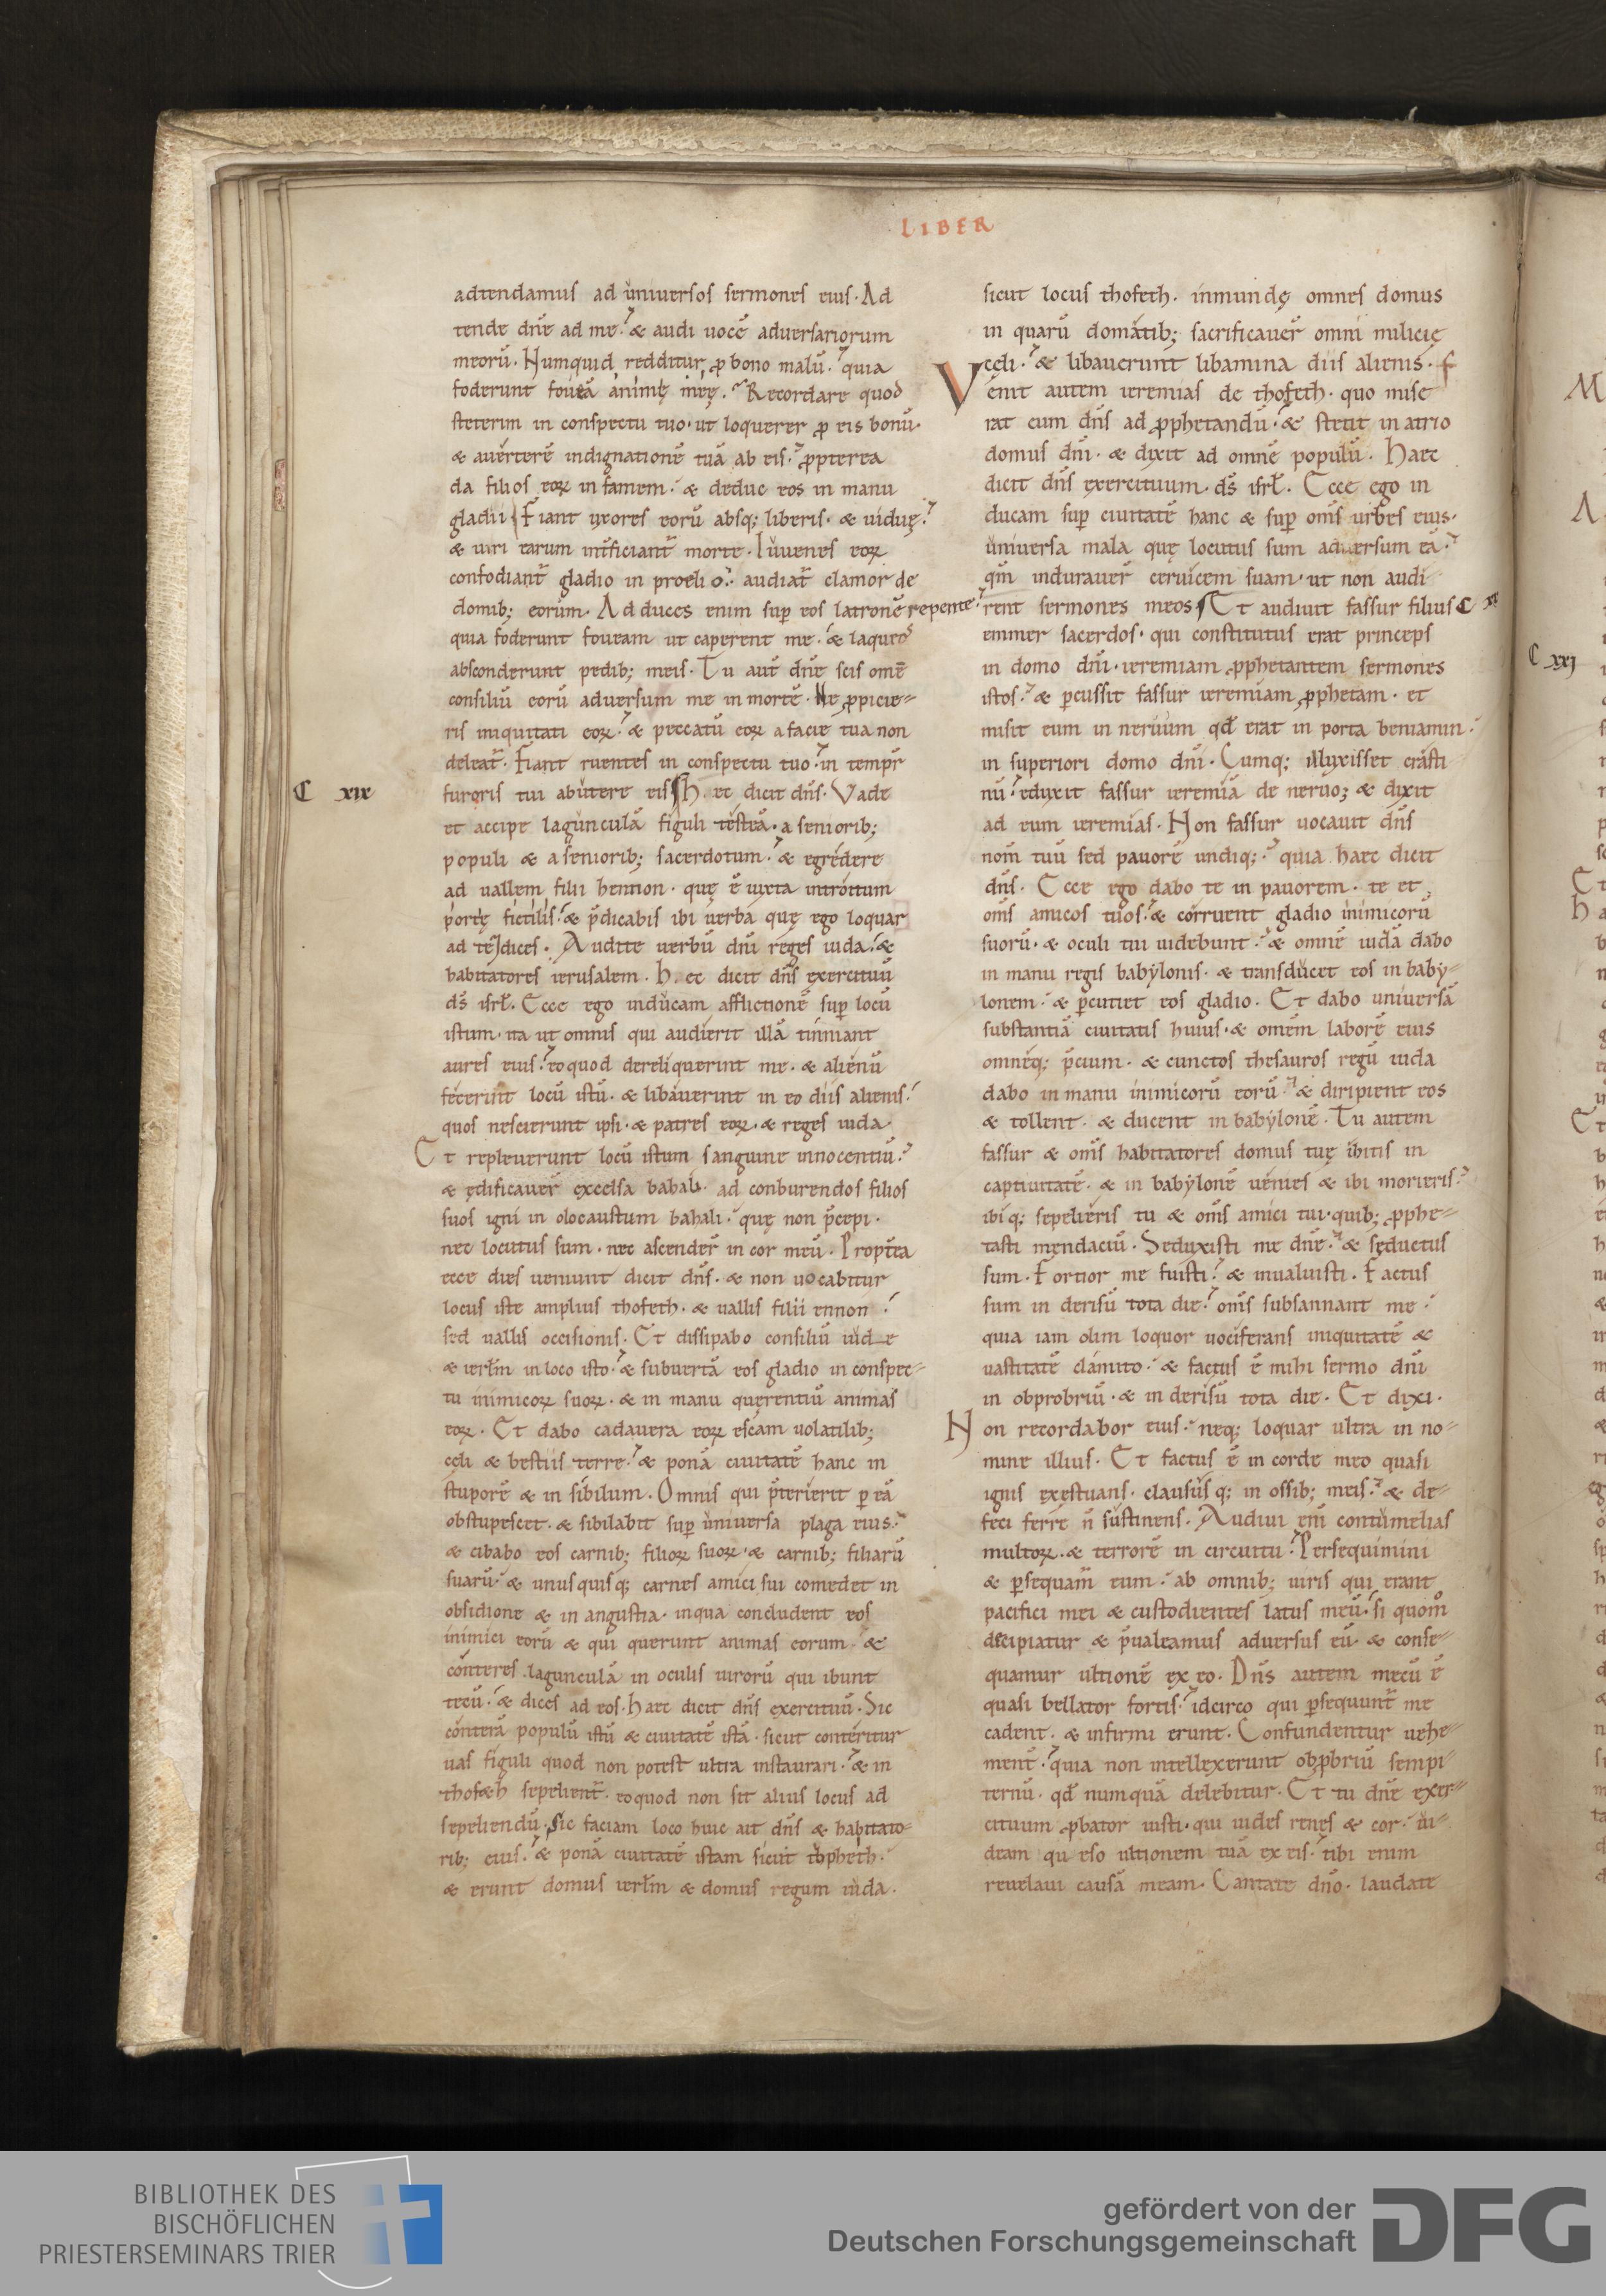 LIBER
adtendamus ad uniuersos sermones eius. Ad
tende dn̄e ad me. & audi uocē aduersariorum
meorū. Numquid redditur ꝓ bono malū. quia
foderunt foueā animę meę. Recordare quod
steterim in conspectu tuo. ut loquerer ꝓ eis bonū.
& auerterē indignationē tuā ab eis. ꝓpterea
da filios eoꝝ in famem. & deduc eos in manu
gladii. Fiant uxores eorū absq; liberis. & uiduę.
& uiri earum int̄ficiant̄ morte. Iuuenes eoꝝ
confodiant̄ gladio in proelio. audiat̄ clamor de
domib; eorum. Adduces enim sup̄ eos latronē repente.
quia foderunt foueam ut caperent me. & laqueos
absconderunt pedib; meis. Tu aut̄ dn̄e scis omē
consiliū eorū aduersum me in mortē. Ne ꝓpicie-
ris iniquitati eoꝝ. & peccatū eoꝝ a facie tua non
deleat̄. Fiant ruentes in conspectu tuo. in temp̄r
C xix
furoris tui abutere eis. Hec dicit dn̄s. Vade
et accipe lagunculā figuli testeā. a seniorib;
populi & a seniorib; sacerdotum. & egredere
ad uallem filii hennon. quę ē iuxta introitum
portę fictilis. & p̄dicabis ibi uerba quę ego loquar
ad te. & dices. Audite uerbū dn̄i reges iuda. &
habitatores ierusalem. Hec dicit dn̄s exercituū
ds̄ isrł. Ecce ego inducam afflictionē sup̄ locū
istum. ita ut omnis qui audierit illā tinniant
aures eius. eo quod dereliquerint me. & alienū
fecerint locū istū. & libauerint in eo diis alienis.
quos nescierunt ipsi. & patres eoꝝ. & reges iuda.
Et repleuerunt locū istum sanguine innocentiū.
& ędificauer̄ excelsa bahali. ad conburendos filios
suos igni in olocaustum bahali. quę non p̄cepi.
nec locutus sum. nec ascender̄ in cor meū. Propt̄ea
ecce dies ueniunt dicit dn̄s. & non uocabitur
locus iste amplius thofeth. & uallis filii ennon.
sed uallis occisionis. Et dissipabo consiliū iude
& ierłm in loco isto. & subuertā eos gladio in conspec-
tu inimicoꝝ suoꝝ. & in manu querentiū animas
eoꝝ. Et dabo cadauera eoꝝ escam uolatilib;
cęli & bestiis terre. & ponā ciuitatē hanc in
stuporē & in sibilum. Omnis qui p̄terierit p eā
obstupescet. & sibilabit sup̄ uniuersa plaga eius.
& cibabo eos carnib; filioꝝ suoꝝ. & carnib; filiarū
suarū. & unusquisq; carnes amici sui comedet in
obsidione & in angustia. in qua concludent eos
inimici eorū & qui querunt animas eorum. &
conteres lagunculā in oculis uirorū qui ibunt
tecū. & dices ad eos. Haec dicit dn̄s exercituū. Sic
conterā populū istū & ciuitatē istā. sicut conteritur
uas figuli quod non potest ultra instaurari. & in
thofeh sepelient̄. eo quod non sit alius locus ad
sepeliendū. Sic faciam loco huic ait dn̄s & habitato-
rib; eius. & ponā ciuitatē istam sicut thopheth.
& erunt domus ierłm & domus regum iuda.
sicut locus thofeth. inmundę omnes domus
in quarū domatib; sacrificauer̄ omni milicię
cęli. & libauerunt libamina diis alienis.
Venit autem ieremias de thofeth. quo mise
rat eum dn̄s ad ꝓphetandū. & stetit in atrio
domus dn̄i. & dixit ad omnē populū. Haec
dicit dn̄s exercituum. ds̄ isrł. Ecce ego in
ducam sup̄ ciuitatē hanc & sup̄ om̄s urbes eius.
uniuersa mala quę locutus sum aduersum eā.
qm̄ indurauer̄ ceruicem suam. ut non audi-
rent sermones meos. Et audiuit fassur filius C xx
emmer sacerdos. qui constitutus erat princeps
in domo dn̄i. ieremiam ꝓphetantem sermones
istos. & p̄cussit fassur ieremiam ꝓphetam. et
misit eum in neruum qd̄ erat in porta beniamin.
in superiori domo dn̄i. Cumq; illuxisset crasti
nū. eduxit fassur ieremiā de neruo; & dixit
ad eum ieremias. Non fassur uocauit dn̄s
nom̄ tuū sed pauorē undiq;. quia haec dicit
dn̄s. Ecce ego dabo te in pauorem. te et
om̄s amicos tuos. & corruent gladio inimicorū
suorū. & oculi tui uidebunt. & omnē iudā dabo
in manu regis babylonis. & transducet eos in baby-
lonem. & p̄cutiet eos gladio. Et dabo uniuersā
substantiā ciuitatis huius. & omēm laborē eius
omnēq; p̄cium. & cunctos thesauros regū iuda
dabo in manu inimicorū eorū. & diripient eos
& tollent. & ducent in babylonē. Tu autem
fassur & om̄s habitatores domus tuę ibitis in
captiuitatē. & in babylonē uenies & ibi morieris.
ibiq; sepelieris tu & om̄s amici tui. quib; ꝓphe-
tasti mendaciū. Seduxisti me dn̄e. & seductus
sum. Fortior me fuisti. & inualuisti. Factus
sum in derisū tota die. om̄s subsannant me.
quia iam olim loquor uociferans iniquitatē &
uastitatē clamito. & factus ē mihi sermo dn̄i
in obprobriū. & in derisū tota die. Et dixi.
Non recordabor eius. neq; loquar ultra in no-
mine illius. Et factus ē in corde meo quasi
ignis exestuans. claususq; in ossib; meis. & de-
feci ferre n̄ sustinens. Audiui em̄ contumelias
multoꝝ. & terrorē in circuitu. Persequimini
& p̄sequam̄ eum. ab omnib; uiris qui erant
pacifici mei & custodientes latus meū. si quom̊
decipiatur & p̄ualeamus aduersus eū. & conse-
quamur ultionē ex eo. Dn̄s autem mecū ē
quasi bellator fortis. idcirco qui p̄sequunt̄ me
cadent. & infirmi erunt. Confundentur uehe-
ment̄. quia non intellexerunt obp̄briū sempi-
ternū. qd̄ numquā delebitur. Et tu dn̄e exer-
cituum ꝓbator iusti. qui uides renes & cor. ui-
deam qu eso ultionem tuā ex eis. tibi enim
reuelaui causā meam. Cantate dn̄o. laudate
C xxj
BIBLIOTHEK DES
BISCHÖFLICHEN
PRIESTERSEMINARS TRIER
gefördert von der
Deutschen Forschungsgemeinschaft
DFG